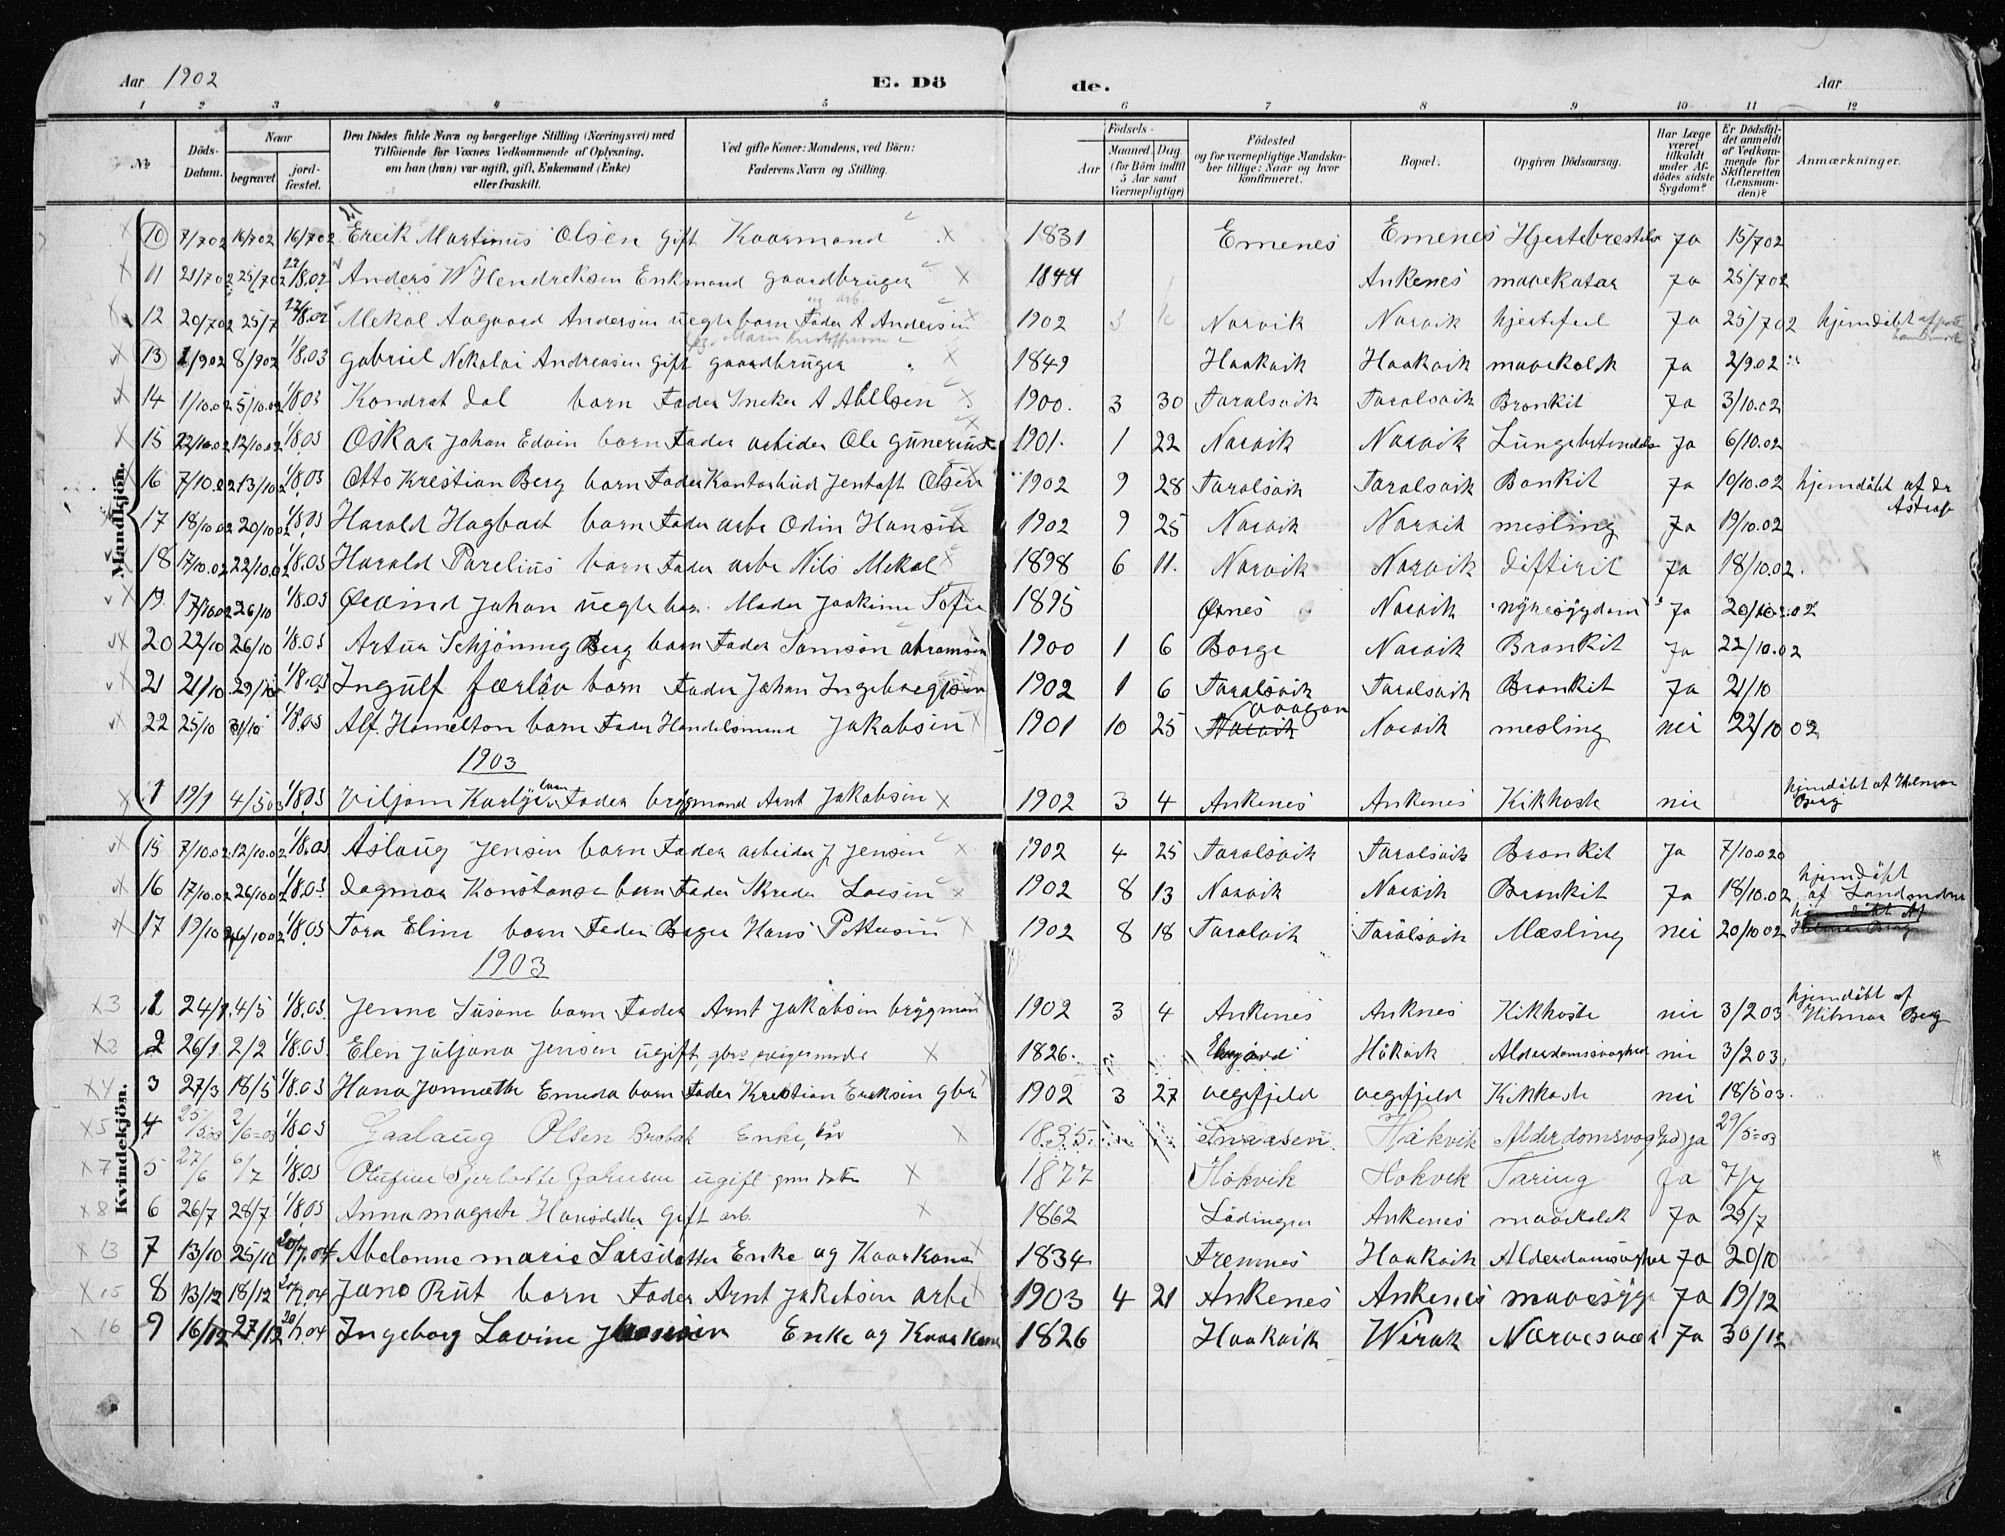 Aar 1902 E. Dö de. Aar
1 2 3 4 5 6 7 8 9 10 11 12
№ Döds-Datum. Naar begravet. jord-fæstet. Den Dödes fulde Navn og borgerlige Stilling (Næringsvei) med Tilföiende for Voxnes Vedkommende af Oplysning, om han (hun) var ugift, gift, Enkemand (Enke) eller fraskilt. Ved gifte Koner: Mandens, ved Börn: Faderens Navn og Stilling. Födsels- Aar Maaned. Dag (for Börn indtil 5 Aar samt Værnepligtige) Födested og for værnepligtige Mandska-ber tillige: Naar og hvor konfirmeret. Bopæl. Opgiven Dödsaarsag. Har Læge været tilkaldt under Af-dödes sidste Sygdom? Er Dödsfal-det anmeldt af Vedkom-mende for Skifteretten (Lensman-den)? Anmærkninger.
Mandkjön.
10 7/7 02 16/7 02 16/7 02 Ereik Martinus Olsen gift Kaarmand X 1831 Emenes Emenes Ja 15/7 02
11 21/7 02 25/7 02 22/8.02 Anders W Hendreksen Enkemand gaardbruger X 1844 Ankenes mavekatar Ja 25/7 02
12 20/7 02 25/7 22/8.02 Mekal Aagaard Andersen uegte barn Fader A Andersen 1902 3 Narvik Narvik hjertefeil Ja 25/7 02 hjemdöbt af
13 1/9 02 8/9 02 1/8 03 Gabriel Nekolai Andreasen gift gaardbruger X 1849 Haakvik Haakvik mavekolik Ja 2/9 02
14 1/10.02 5/10.02 1/8 03 Kondrat Dal barn Fader Sneker A Abelsen 1900. 3 30 Taralsvik Taralsvik Bronkit Ja 3/10.02
15 12/10.02 1/8 03 Oskar Johan Edvin barn Fader arbeider Ole Gunerius 1901. 1 22 Narvik Narvik Lungebetendelse Ja 6/10.02
16 7/10.02 13/10 02 1/8 03 Otto Krestian Berg barn Fader Kontorbud Jentoft Olsen 1902 9 28 Taralsvik Taralsvik Bonkit Ja 10/10.02 hjemdöbt af Dr Astrup
17 18/10 02 20/10 02 1/8 03 Harald Hagbart barn Fader arbe Odin Hansen 1902 9 25 Narvik Narvik mesling Ja 19/10.02
18 17/10.02 22/10.02 1/8.03 Harald Parelius barn Fader arbe Nils Mekal 1898 6 11. Narvik Narvik Diftirit Ja 18/10.02.
19 17/10.02 26/10 1/8.03 Øevind Johan uegte bar. Moder Joakime Sofie 1895 Øxnes Narvik nyresygdom Ja 20/10.02
20 22/10 26/10 1/8.03 Artur Schjönning Berg barn Fader Samson Abramsen 1900 1 6 Borge Narvik Bronkit Ja 22/10.02
21 21/10 29/10 1/8.03 Ingulf Færlöv barn Fader Johan Ingebregtsen 1902 1 6 Taralsvik Taralsvik Bronkit Ja 21/10
22 25/10 31/10 1/8.03 Alf Hamelton barn Fader Handelsmand Jakobsen 1901 10 25 Narvik Vaagan Narvik mesling nei 22/10 02
1903
1 19/1 4/5 03 1/8.03 Viljam barn Fader brygmand Arnt Jakobsen X 1902 3 4 Ankenes Ankenes Kikhoste nei hjemdöbt af Helmer Berg
Kvindekjön.
15 7/10.02 12/10.02 1/8.03 Aslaug Jensen barn Fader arbeider J Jensen X 1902 4 25 Taralsvik Taralsvik Bronkit Ja 7/10.02
16 17/10.02 26/10 02 1/8.03 Dagmar Konstanse barn Fader Skreder Larsen X 1902 8 13 Narvik Narvik Bronkit Ja 18/10.02 hjemdöbt af
17 19/10 26/10 02 1/8.03 Tora Eline barn Fader Hans Pettersen X 1902 8 18 Taralvik Taralsvik Mæsling nei 20/10 02 hjemdöbt af Helmer Berg
1903
X 3 1 24/1 4/5 1/8.03. Jenne Susane barn Fader Arnt Jakobsen brygman 1902 3 4 Ankenes Anknes Kikhoste nei 3/2 03 hjemdöbt af Hilmar Berg
X 2 2 26/1 2/2 1/8.03. Elen Juljana Jensen ugift X 1826. Håkvik Alderdomssvaghed nei 3/2 03.
X 4 3 27/3 18/5 1/8 03 Hana Jonnætte Emeda barn Fader Krestian Ereksen gbr 1902 3 27 vegsfjeld vegsfjeld Kikkoste nei 18/5 03.
X 5 4 25/5 03 2/6 03 1/8 03 Gaalaug Olsen Enke, X 1835 Snaasen Håkvik Alderdomsvaghed ja 29/5 03
X 7 5 27/6 6/7 1/8.03 Olufine ugift X 1877 Håkvik Håkvik Tæring Ja 7/7
X 8 6 26/7 28/7 1/8.03 Anna magrete Hansdatter Gift arb. X 1862 Lödingen Ankenes mavekolik Ja 29/7
X 13 7 13/10 25/10 20/7.04 Abelonne marie Larsdatter Enke og Kaarkone 1834 Tremnes Haakvik Alderdomsvaghed Ja 20/10
X 15 8 13/12 18/12 20/7.04 Jana Rut barn Fader Arnt Jakobsen arbe 1903 4 21 Ankenes Ankenes mavesyge Ja 19/12
X 16 9 16/12 27/12 20/7 04 Ingeborg Lovine Enke og Kaarkone 1826 Haakvik Virak Ja 30/12